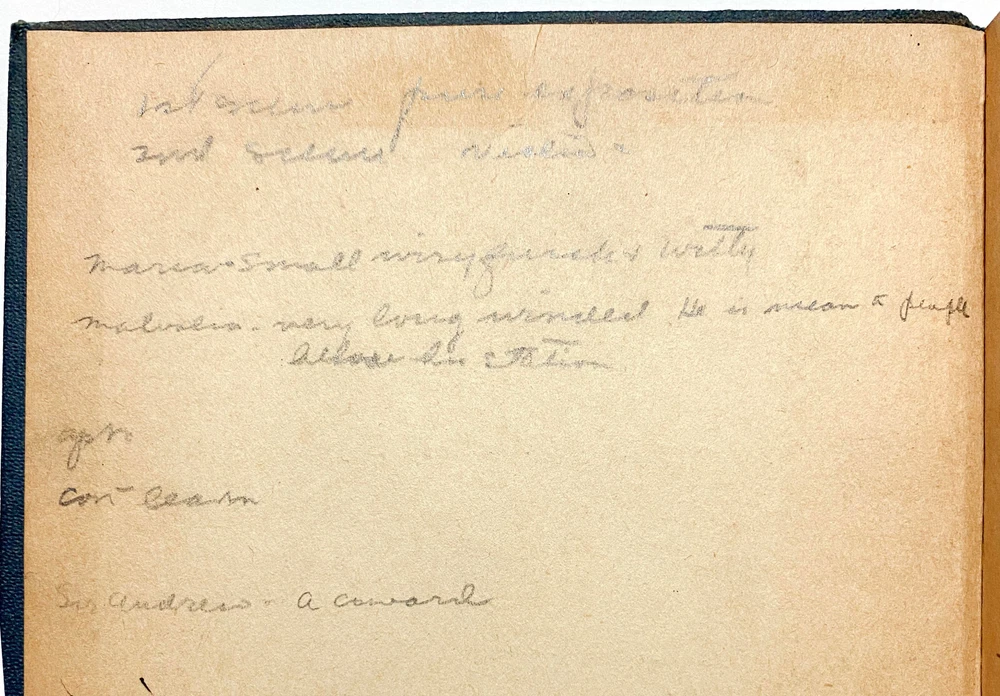 1st scene pure exposition
2nd scene Viola
Maria - Small wiry quick & witty
Malvolio - very long winded. He is mean to people
above his station
Can learn
Sir Andrew - a coward